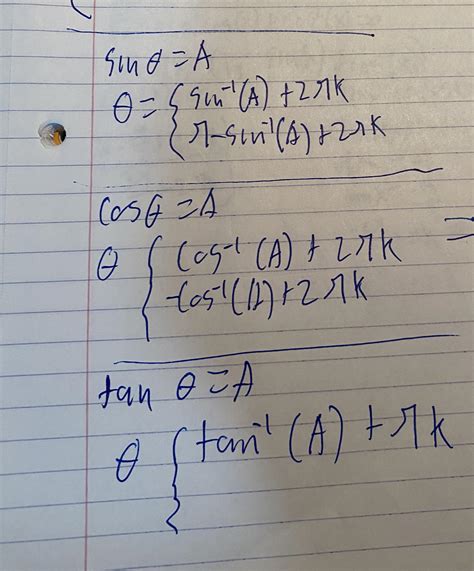 sinθ = A
θ = { sin⁻¹(A) + 2πk
π - sin⁻¹(A) + 2πk
cosθ = A
θ { cos⁻¹ (A) + 2πk
-cos⁻¹(A) + 2πk
tan θ = A
θ { tan⁻¹ (A) + πk